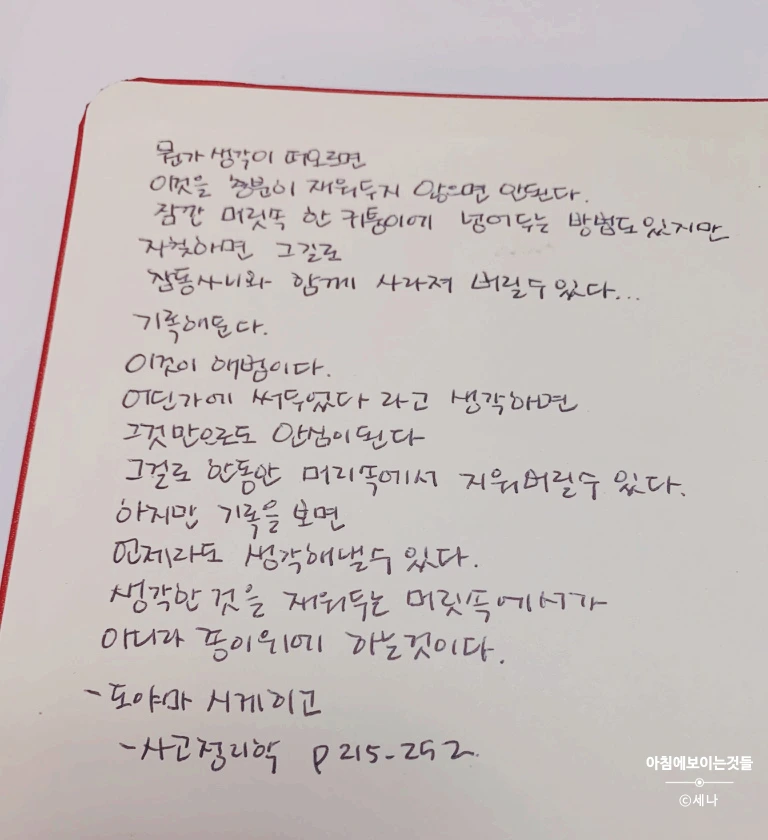 뭔가 생각이 떠오르면
이것을 충분이 재워두지 않으면 안된다.
잠깐 머릿속 한 귀퉁이에 넣어두는 방법도 있지만
자칫하면 그길로
잠동사니와 함께 사라져 버릴수있다...
기록해둔다.
이것이 해법이다.
어딘가에 써두었다 라고 생각하면
그것만으로도 안심이된다
그걸로 한동안 머리속에서 지워버릴수 있다.
하지만 기록을 보면
언제라도 생각해낼수 있다.
생각한 것을 재워두는 머릿속에서가
아니라 종이위에 하는것이다.
- 도야마 시게히고
- 사고정리학 p 215-252
아침에보이는것들
©세나